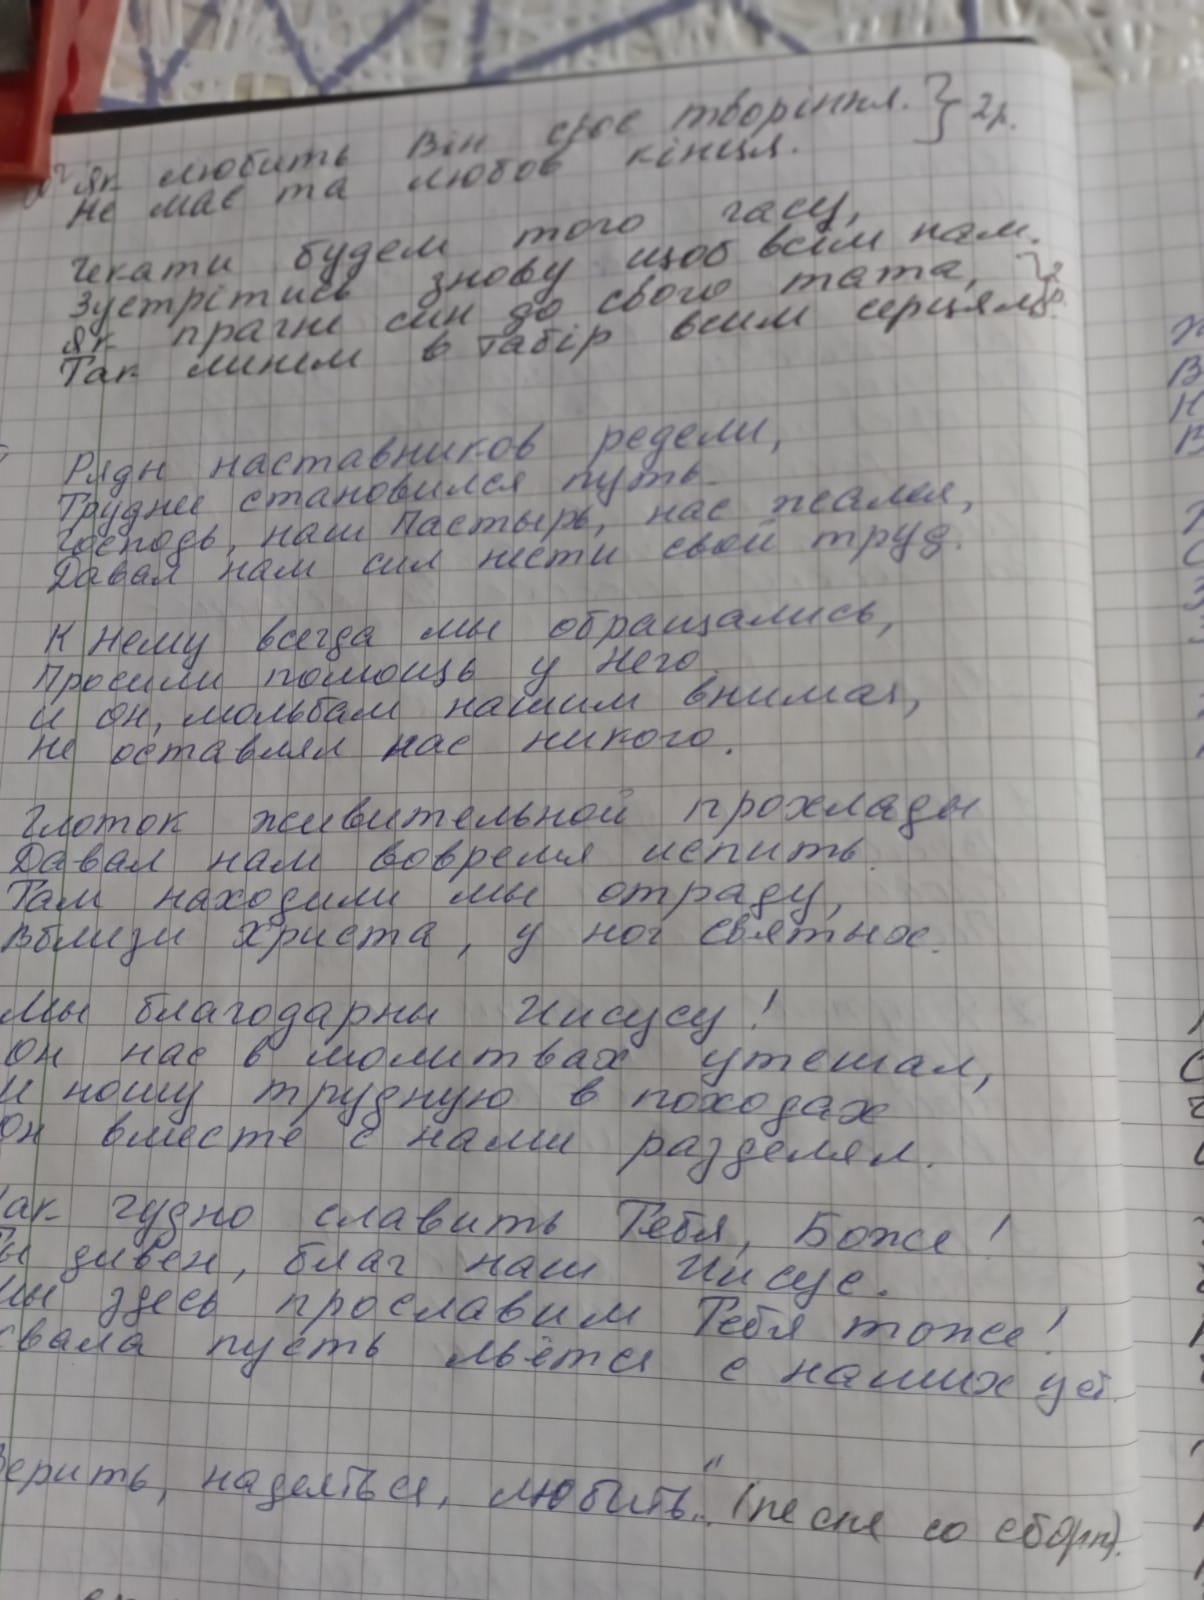 Як любить Він своє творіння. } 2р.
Не має та любов кінця.
Чекати будем того часу,
Зустрітись знову щоб всім нам.
Як прагне син до свого тата, } 2р.
Так линем в табір всим серцям
Ряды наставников редели,
Труднее становился путь.
Господь, наш Пастырь, нас жалел,
Давал нам сил нести свой труд.
К Нему всегда мы обращались,
Просили помощь у Него.
И Он, мольбам нашим внимая,
Не оставлял нас никого.
Глоток живительной прохлады
Давал нам вовремя испить.
Там находили мы отраду,
Вблизи Христа, у ног святых.
Мы благодарны Иисусу!
Он нас в молитвах утешал,
И ношу трудную в походах
Он вместе с нами разделял.
Как чудно славить Тебя, Боже!
Ты дивен, благ наш Иисус.
Мы здесь прославим Тебя тоже!
Хвала пусть льётся с наших уст.
Верить, надеяться, любить..." (песня со сборн).